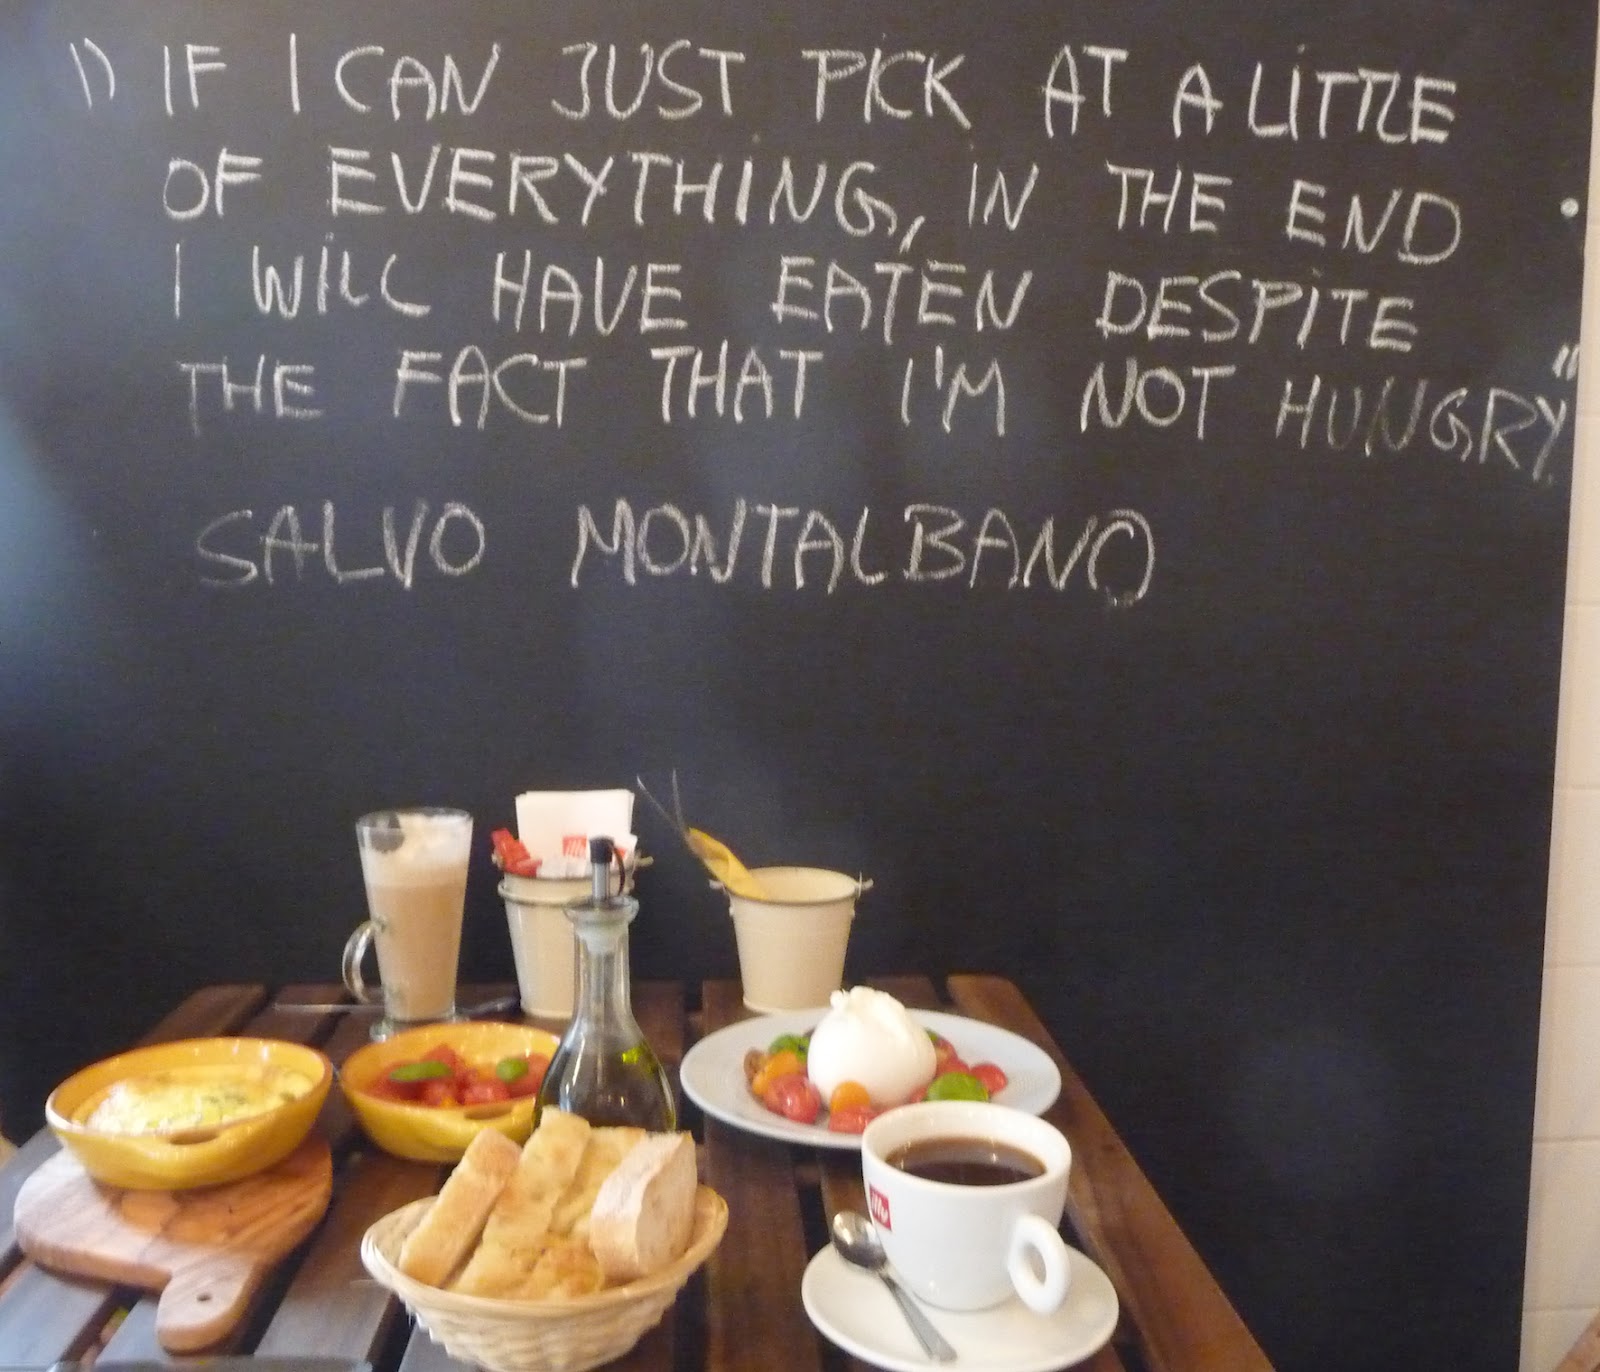 " IF I CAN JUST PICK AT A LITTLE
OF EVERYTHING, IN THE END
I WILL HAVE EATEN DESPITE
THE FACT THAT I'M NOT HUNGRY."
SALVO MONTALBANO
illy
illy